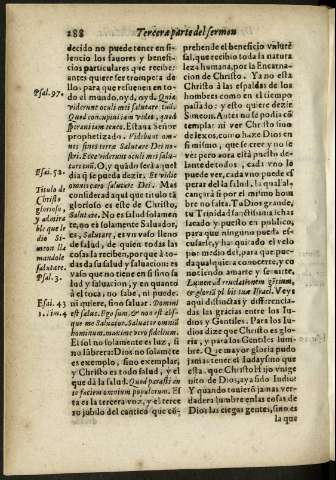 188
Tercera parte del sermon
decido no puede tener en si-
lencio los fauores y benefi-
cios particulares que recibe:
antes quiere ser trompeta de
llos: para que resuenen en to-
do el mundo, oyd, oyd. Quia
viderunt oculi mei salutare tuũ.
Quod concupui iam video, quod
speraui iam teneo. Estaua Señor
prophetizado. Videbunt om-
nes fines terræ Salutare Dei no-
stri. Ecce videruntoculi mei salu-
tare tuũ. O, y quãdo serà aquel
dia q̃ se pueda dezir. Et vidit
omnis caro Salutare Dei. Mas
considerad aqui que titulo tã
glorioso es este de Christo,
Salutare. No es salud solamen
te, no es solamente Saluador,
es, Salutare, es vn vaso lleno
de salud, de quien todas las
cosas la reciben, porque à to-
das da salud y saluacion: es
vaso que no tiene en si sino sa
lud y saluacion, y en quanto
à el toca, no sabe, ni puede,
ni quiere, sino saluar. Domini
est salus. Ego sum, & non est abs-
que me Saluator. Saluator omniũ
hominum, maxime vero fidelium.
El sol no solamente es luz, si
no lũbrera: Dios no solamente
es exemplo, sino exemplar,
y Christo es todo salud, y el
que dà la salud. Quod parasti an
te faciem omnium populorum. El
ta es la tercera voz, y el terce
ro jubilo del cantico que cõ-
Psal. 97.
Esai. 52.
Titulo de
Christo
glorioso,
y admira
ble que le
dio Si-
meon lla
mandole
salutare.
Psal. 3.
Esai. 43
1. Tim. 4
prehende el beneficio valuerẽ
sal, que recibio toda la natura
leza humana, por la Encarna-
cion de Christo. Ya no está
Christo à las espaldas de los
hombres como en el tiempo
passado: y esto quiere dezir
Simeon. Antes no se podia cõ
templar ni ver Christo sino
de lexos, como haze Dios en
si mismo, que se cree y no se
vee pero aora está puesto de-
lante de todos, cada vno le
puede ver, cada vno puede es
perar del la salud, la qual al-
cançará si por el mismo hom
bre no falta. Tu Dios grande,
tu Trinidad sanctissima le has
sacado y puesto en publico,
para que ninguno pueda es-
cusarse, y ha quitado el velo
por medio del, para que pue-
da qualquiera conocerte, y co
nociendo amarte y seruirte.
Lumen ad reuelationem gētium,
& gloriã pl bis tuæ Israel. Veys
aqui distinctas y differencia-
das las gracias entre los Iu-
dios y Gentiles. Para los Iu-
dios dize que Christo es glo-
ria, y para los Gentiles lum-
bre. Que mayor gloria pudo
jamas tener el Iudaysmo que
esta. que Christo Hijo vnige
nito de Dios, aya sido Indio?
Y quando tuuierõ jamas ver-
dadera lumbre en las cosas de
Dios las ciegas gentes, sino es
la que